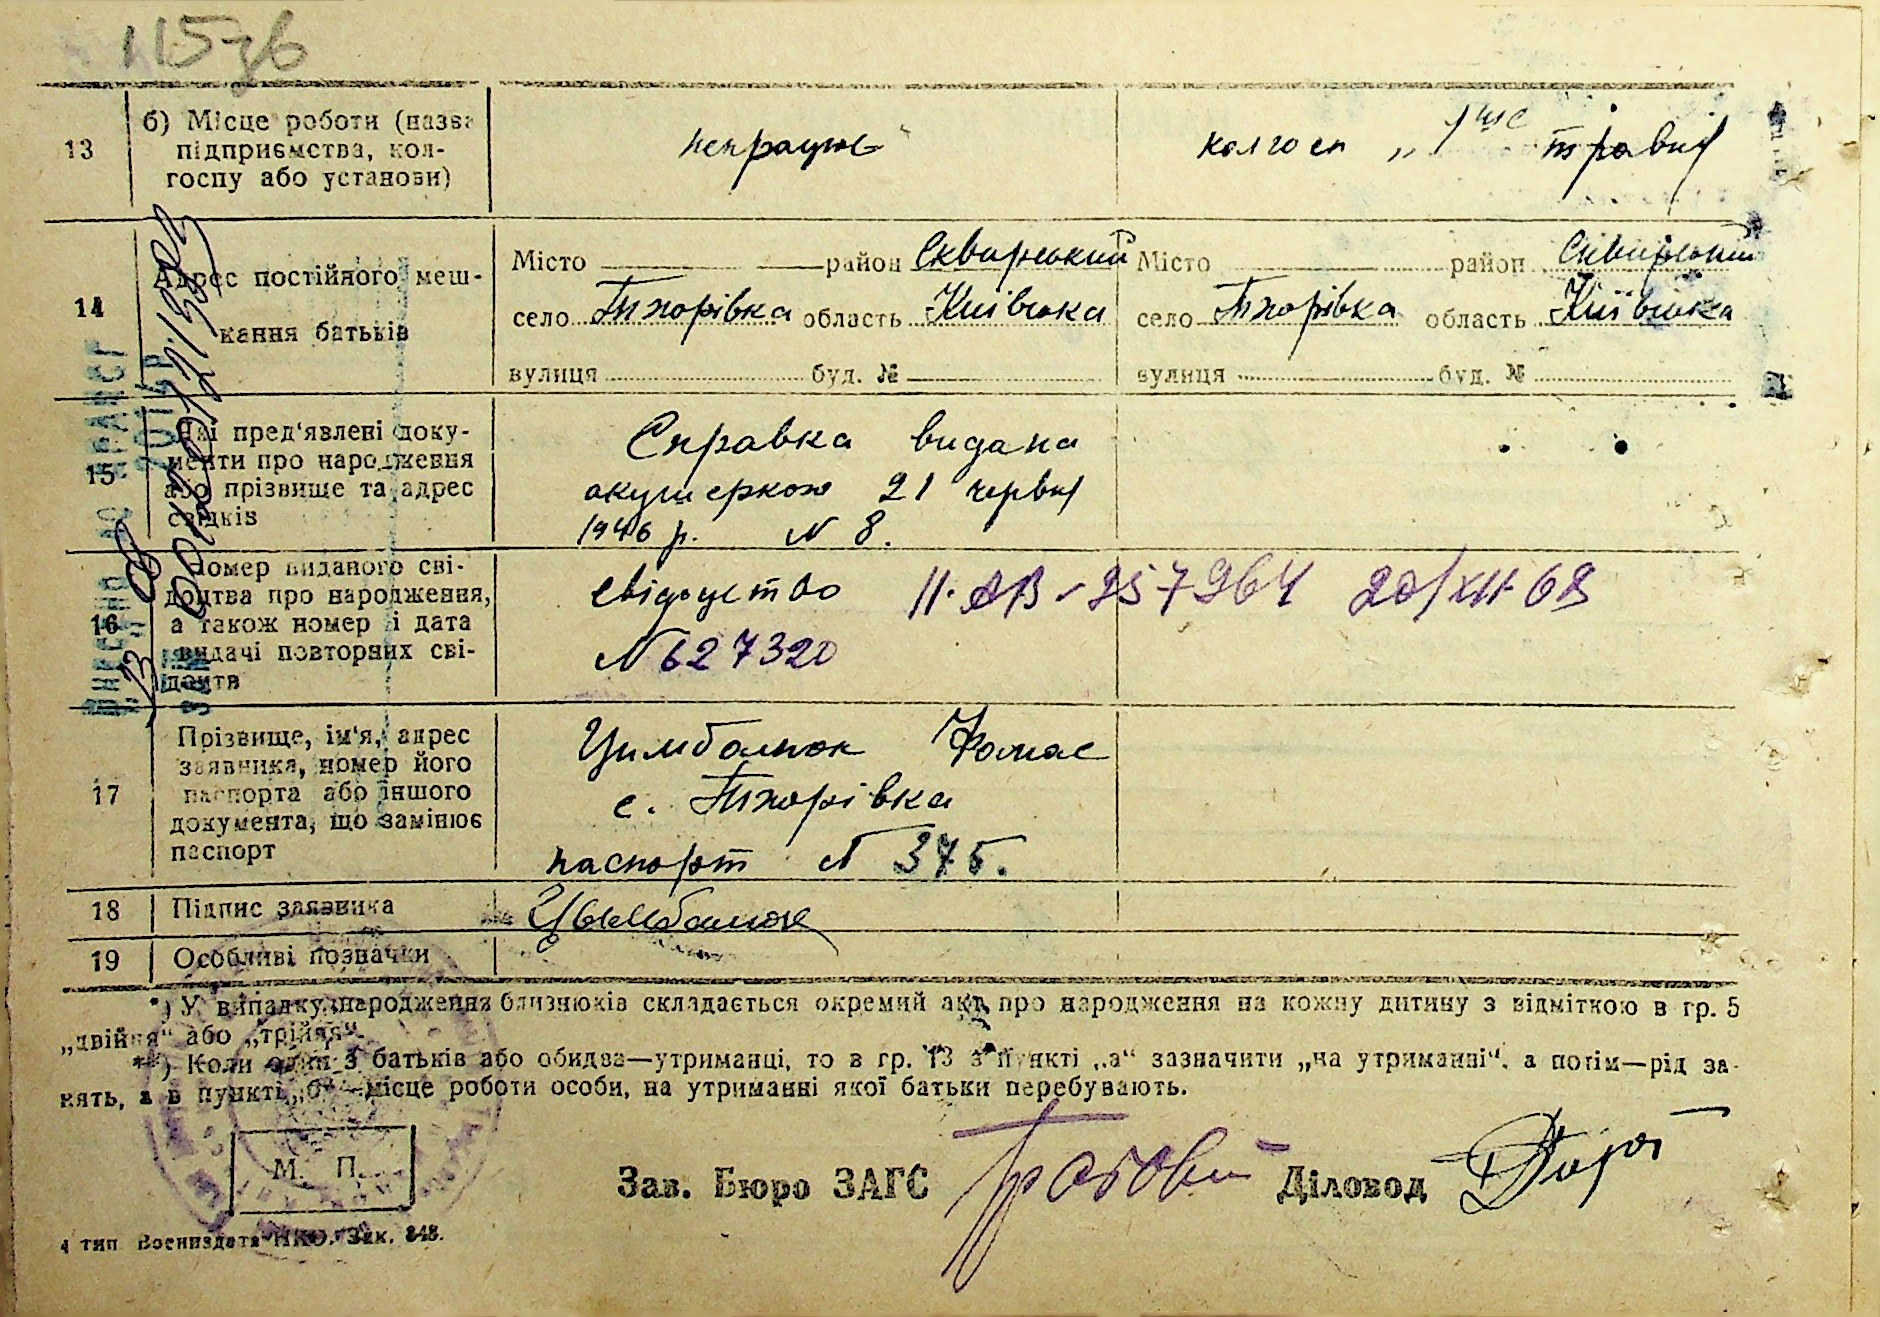 115зв
13
б) Місце роботи (назва
підприємства, кол-
госпу або установи)
непрацює
колгосп „1ше травня
14
Адрес постійного меш-
кання батьків
Місто район Сквирський
село Тхорівка область Київська
вулиця буд. №
Місто район Сквирський
село Тхорівка область Київська
вулиця буд. №
15
Які пред'явлені доку-
менти про народження
або прізвище та адрес
свідків
Справка видана
акушеркою 21 червня
1946 р. N 8.
16
Номер виданого сві-
доцтва про народження,
а також номер і дата
видачі повторних сві-
доцтв
свідоцтво
N 627320
II-АВ-257264 20/XII-68
17
Прізвище, ім'я, адрес
заявника, номер його
паспорта або іншого
документа, що замінює
паспорт
Цимбалюк Фомас
с. Тхорівка
паспорт N 375.
18
Підпис заявника
Цымбалюк
19
Особливі позначки
*) У випадку народження близнюків складається окремий акт про народження на кожну дитину з відміткою в гр. 5
„двійня“ або „трійня“.
**) Коли один з батьків або обидва—утриманці, то в гр. 13 в пункті „а“ зазначити „на утриманні“, а потім—рід за-
нять, а в пункті „б“—місце роботи особи, на утриманні якої батьки перебувають.
М. П.
Зав. Бюро ЗАГС
Діловод
4 тип Воениздата НКО. Зак. 848.